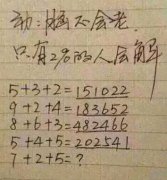 动脑不会老.
只有2%的人会解
5+3+2=151022
9+2+4=183652
8+6+3=482466
5+4+5=202541
7+2+5=?